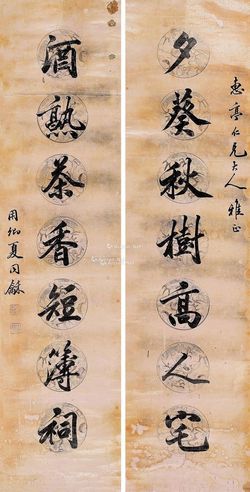 惠亭仁兄大人雅正
夕葵秋樹高人宅
酒熟茶香短簿祠
用卿夏同龢